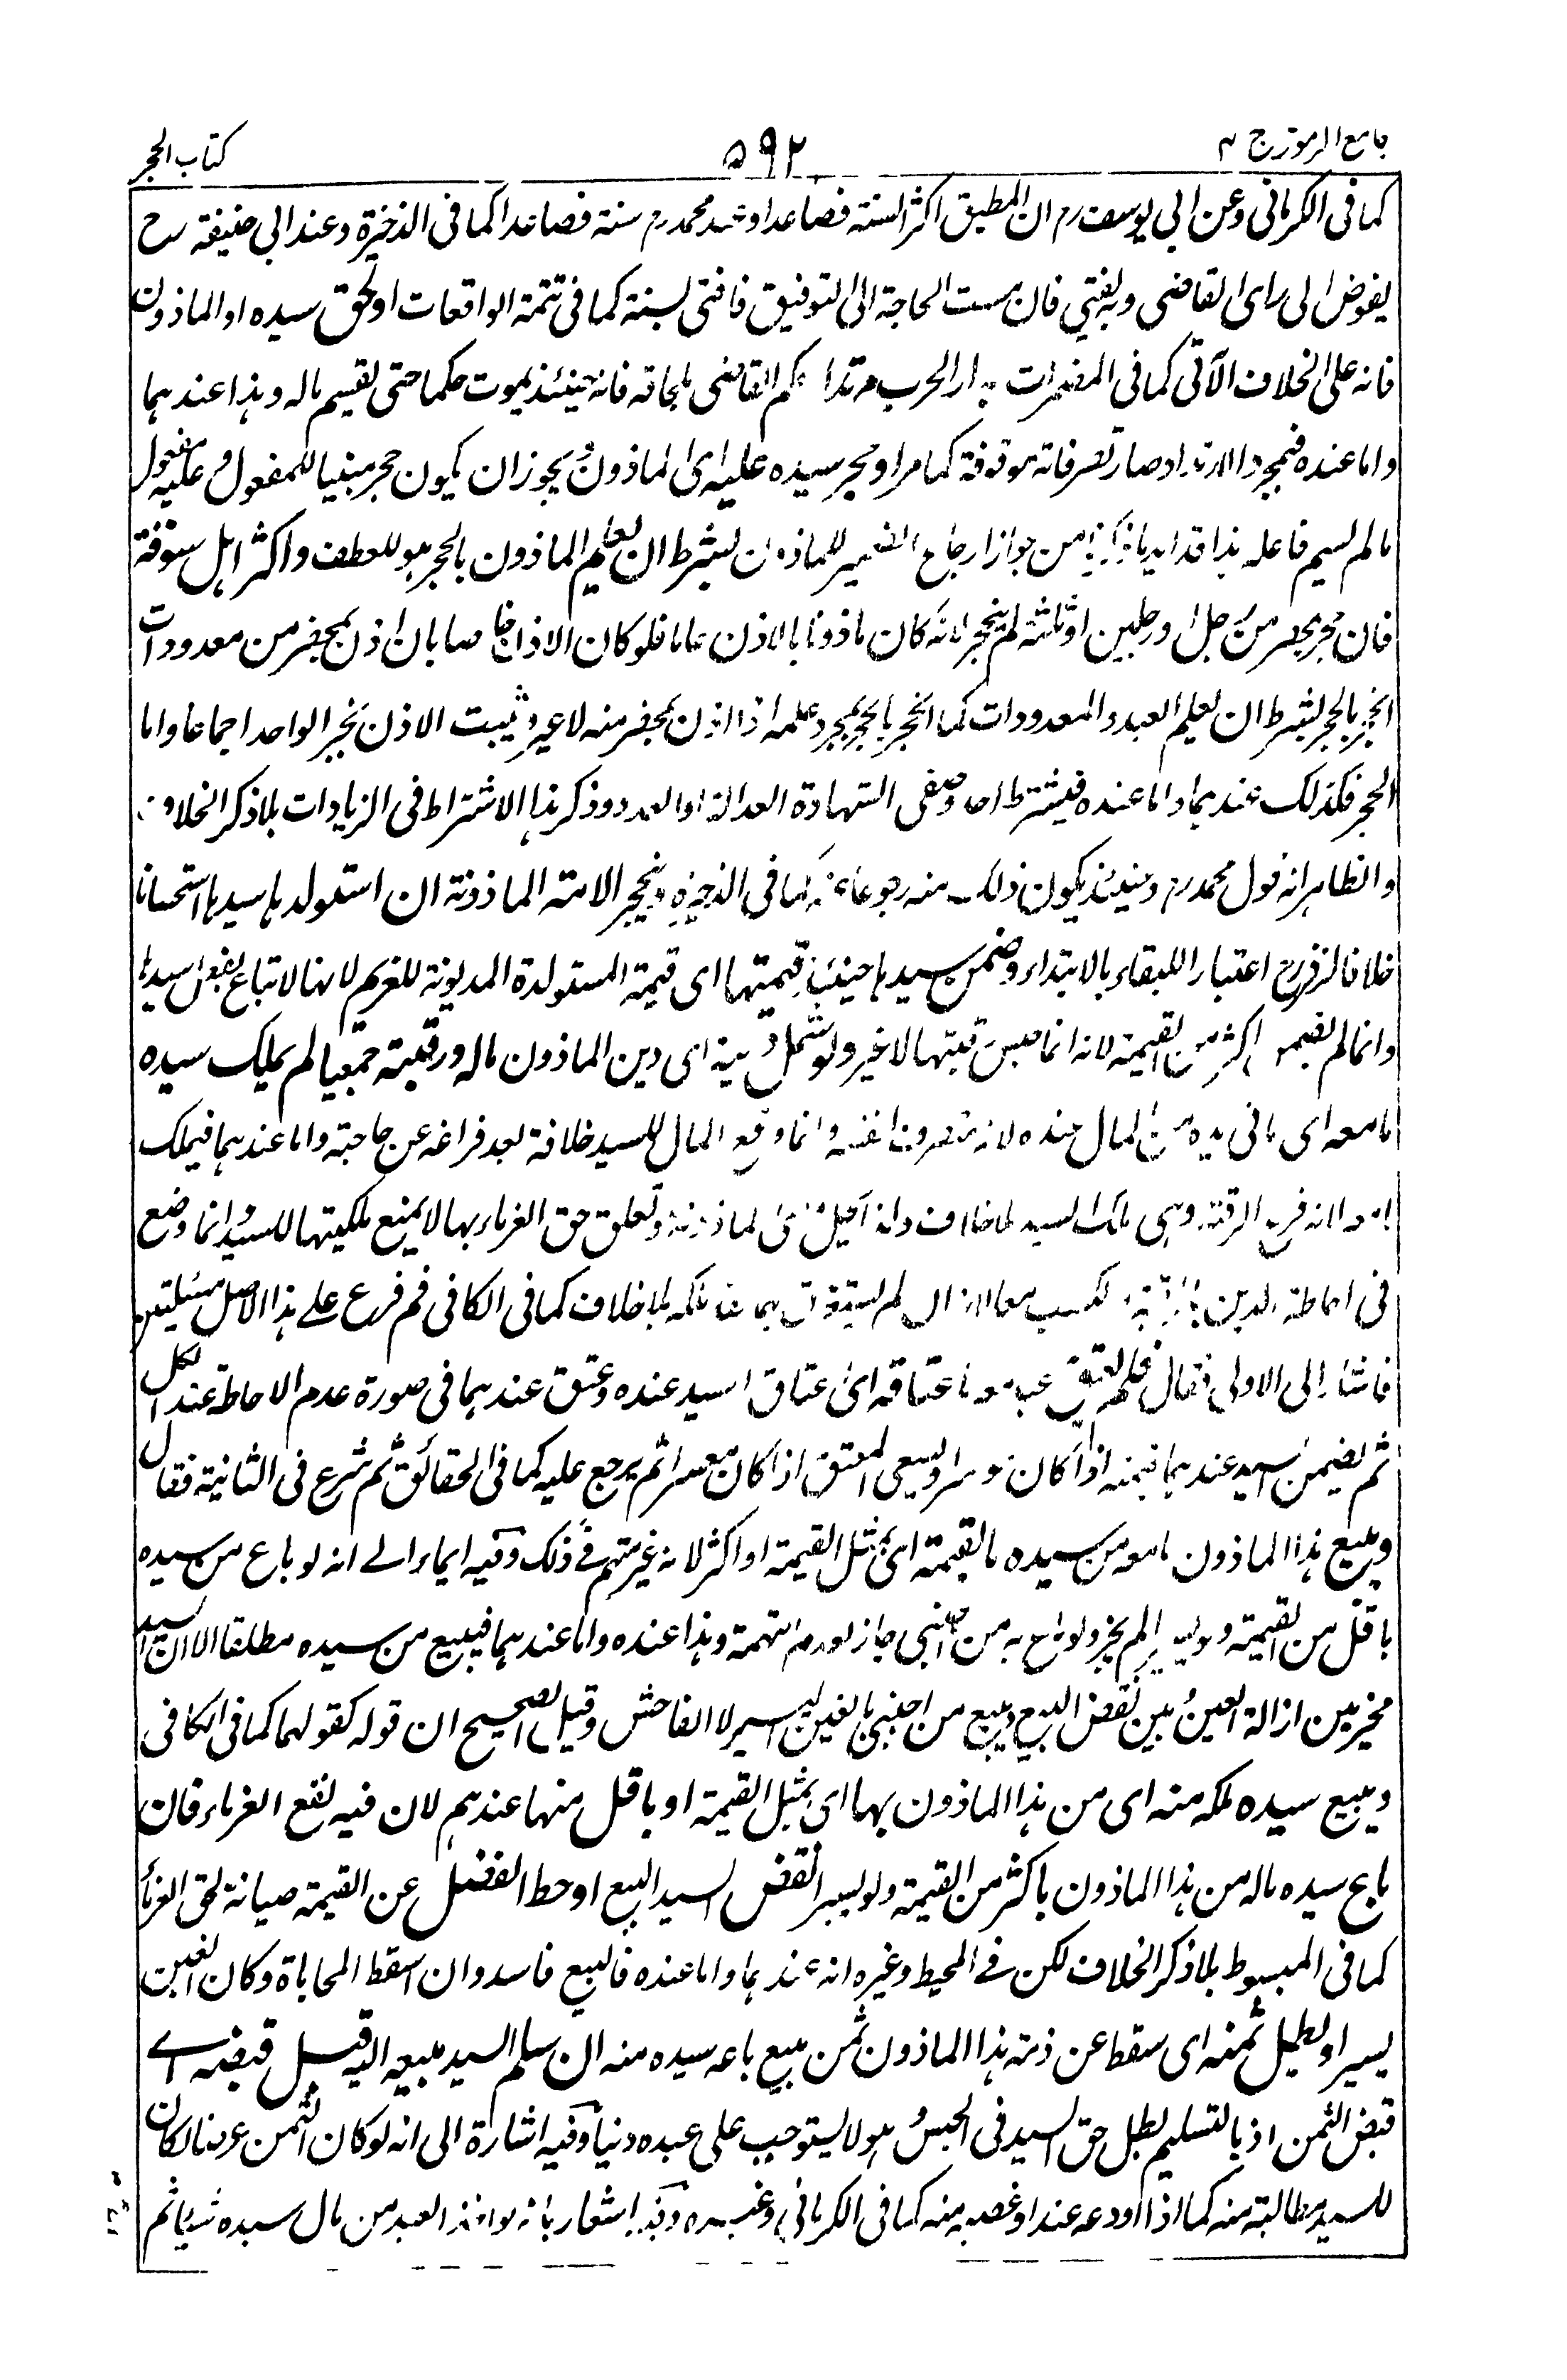 جامع الرموز ج ٢
٥٩٢
كتاب الحجر
كما فى الكرمانى وعن ابى يوسف رم ان المطبق اكثر السنة فصاعدا وعند محمد رم سنة فصاعدا كما فى الذخيرة وعند ابى حنيفة رح
يفوض الى راى القاضى وبه يفتى فان مست الحاجة الى التوفيق فافتى بسنة كما فى تتمة الواقعات او لحق سيده او الماذون
فانه على الخلاف الآتى كما فى المضمرات بدار الحرب مرتدا حكم القاضى بلحاقه فانه حينئذ يموت حكما حتى يقسم ماله وهذا عندهما
واما عنده فبمجرد الارتداد صار تصرفاته موقوفة كما مر او حجر سيده عليه اى الماذون يجوز ان يكون حجر مبنيا للمفعول وعليه مفعول
ما لم يسم فاعله هذا من جواز ارجاع الضمير للماذون بشرط ان يعلم الماذون بالحجر هو للعطف واكثر اهل سوقه
فان حجر بحضر من رجل او رجلين او ثلثة لم ينحجر لانه كان ماذونا بالاذن عاما فلو كان الاذن خاصا بان اذن بمحضر من معدودات
انحجر بالحجر بشرط ان يعلم العبد والمعدودات كما انحجر بالحجر بمجرد علمه اذا اذن بمحضر منه لا غير ويثبت الاذن بخبر الواحد اجماعا واما
الحجر فكذلك عندهما واما عنده فيشترط احد وصفى الشهادة العدالة او العدد وذكر هذا الاشتراط فى الزيادات بلا ذكر الخلاف
والظاهر انه قول محمد رم وحينئذ يكون ذلك منه رجوعا كما فى الذخيرة وينحجر الامة الماذونة ان استولدها سيدها استحسانا
خلافا لزفر رح اعتبارا للبقاء بالابتداء وضمن سيدها حينئذ قيمتها اى قيمة المستولدة المديونة للغريم لانها لا تباع بفعل سيدها
وانما لم يضمن اكثر من القيمة لانه انما حبس قيمتها لا غير ولو شمل دينه اى دين الماذون ماله ورقبته جميعا لم يملك سيده
ما معه اى ما فى يده من المال عنده لانه يتصرف لنفسه وانما وقع المال للسيد خلافة بعد فراغه عن حاجته واما عندهما فيملك
وهى ملك السيد بلا خلاف وتعلق حق الغرماء بها لا يمنع ملكيتها للسيد وانما وضع
فى احاطة الدين بلا خلاف كما فى الكافى ثم فرع على هذا الاصل مسئلتين
فاشار الى الاولى فقال فلم يعتق عبد معه باعتاقه اى اعتاق السيد عنده وعتق عندهما فى صورة عدم الاحاطة عند الكل
ثم يضمن السيد عندهما قيمته اذا كان موسرا ويسعى المعتق اذا كان معسرا ثم يرجع عليه كما فى الحقائق ثم شرع فى الثانية فقال
ويبيع هذا الماذون ما معه من سيده بالقيمة اى بمثل القيمة او اكثر لانه غير متهم فى ذلك وفيه ايماء الى انه لو باع من سيده
باقل من القيمة ولو يسيرا لم يجز ولو باع به من اجنبى جاز لعدم التهمة وهذا عنده واما عندهما فيبيع من سيده مطلقا الا ان السيد
مخير بين ازالة الغبن وبين نقض البيع ويبيع من اجنبى بالغبن اليسير لا الفاحش وقيل الصحيح ان قوله كقولهما كما فى الكافى
ويبيع سيده ملكه منه اى من هذا الماذون بها اى بمثل القيمة او باقل منها عندهم لان فيه نفع الغرماء فان
باع سيده ماله من هذا الماذون باكثر من القيمة ولو يسيرا نقض السيد البيع او حط الفضل عن القيمة صيانة لحق الغرماء
كما فى المبسوط بلا ذكر الخلاف لكن فى المحيط وغيره انه عندهما واما عنده فالبيع فاسد وان اسقط المحاباة وكان الغبن
يسيرا وبطل ثمنه اى سقط عن ذمة هذا الماذون ثمن مبيع باعه سيده منه ان سلم السيد مبيعه اليه قبل قبضه اى
قبض الثمن اذ بالتسليم بطل حق السيد فى الحبس وهو لا يستوجب على عبده دينا وفيه اشارة الى انه لو كان الثمن عرضا لكان
للسيد مطالبته منه كما اذا اودعه عنده او غصبه منه كما فى الكرمانى وغيره وفيه اشعار بانه لو اخذ العبد من مال سيده شيئا ثم